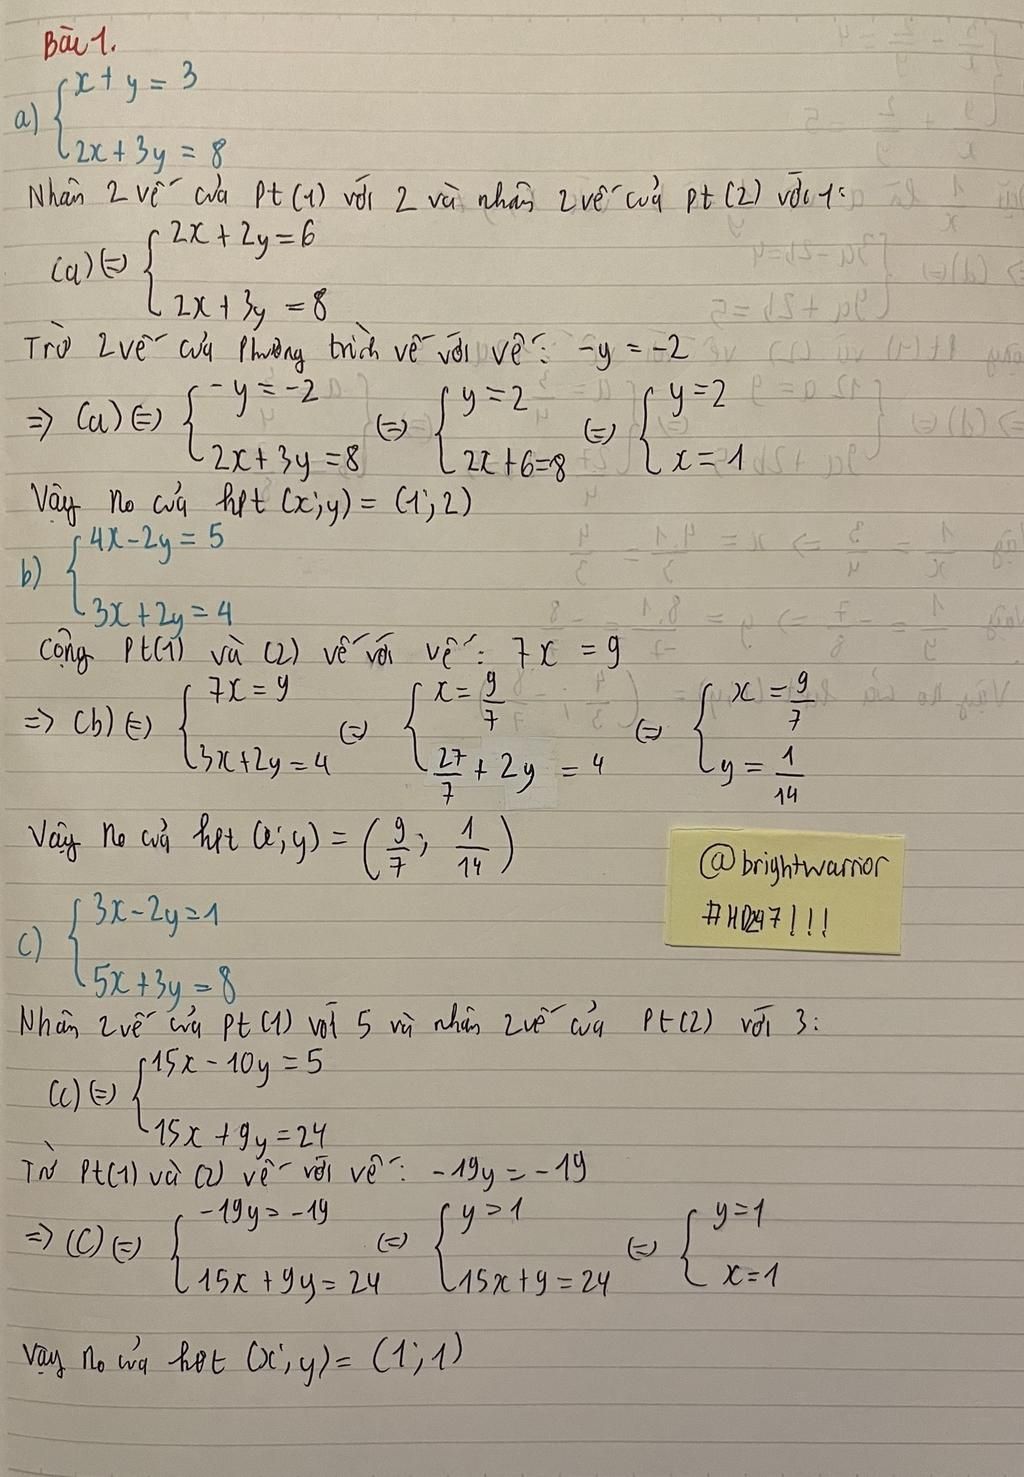 Bài 1.
a) { x + y = 3
2x + 3y = 8
Nhân 2 vế của pt (1) với 2 và nhân 2 vế của pt (2) với 1:
(a) (=) { 2x + 2y = 6
2x + 3y = 8
Trừ 2 vế của phương trình vế với vế: -y = -2
=> (a) (=) { -y = -2 (=) { y = 2 (=) { y = 2
2x + 3y = 8 2x + 6 = 8 x = 1
Vậy no của hpt (x; y) = (1; 2)
b) { 4x - 2y = 5
3x + 2y = 4
Cộng Pt(1) và (2) vế với vế: 7x = 9
=> (b) (=) { 7x = 9 (=) { x = 9/7 (=) { x = 9/7
3x + 2y = 4 27/7 + 2y = 4 y = 1/14
Vậy no của hpt (x; y) = (9/7; 1/14)
@brightwarrior
#HD247!!!
c) { 3x - 2y = 1
5x + 3y = 8
Nhân 2 vế của pt (1) với 5 và nhân 2 vế của Pt(2) với 3:
(c) (=) { 15x - 10y = 5
15x + 9y = 24
Trừ Pt(1) và (2) vế với vế: -19y = -19
=> (c) (=) { -19y = -19 (=) { y = 1 (=) { y = 1
15x + 9y = 24 15x + 9 = 24 x = 1
Vậy no của hpt (x; y) = (1; 1)